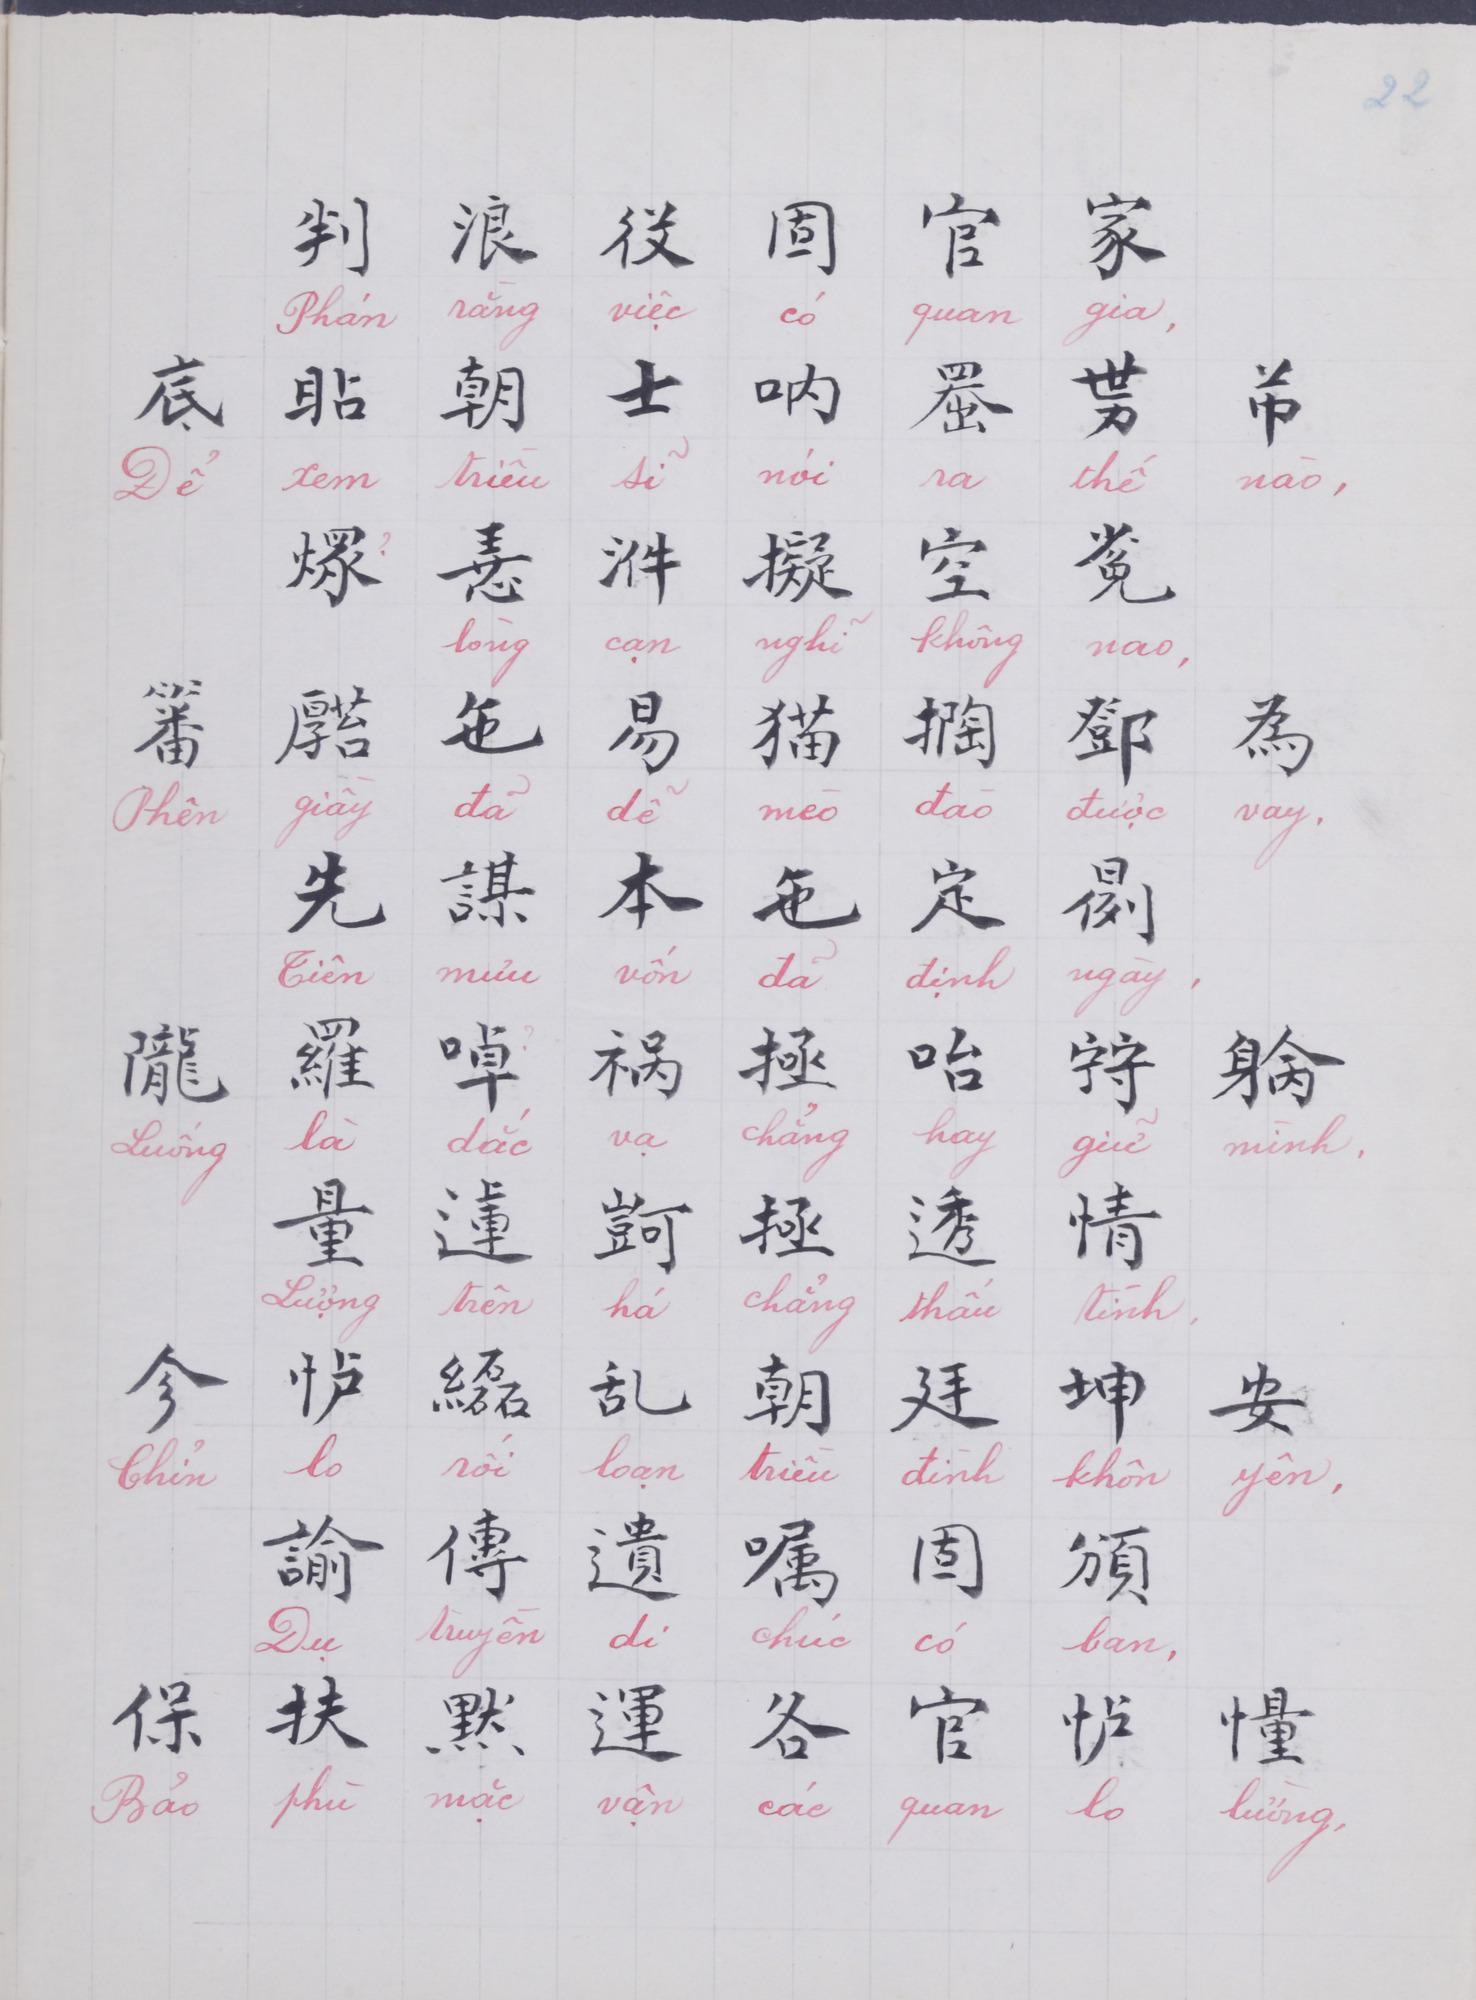 22
判浪役固官家
Phán rằng việc có quan gia,
底貼朝士吶𫥨𠀲芇
Để xem triều sĩ nói ra thế nào,
㷟?𢚸㳥擬空覔
lòng cạn nghĩ không nao,
籓𠫅㐌易猫掏鄧為
Phên giầy đã dễ mèo đào được vay.
先謀本㐌定𣈜
Tiên mưu vốn đã định ngày,
隴羅啅?禍極咍𡨺𨉓
Luống là dắc vạ chẳng hay giữ mình.
量𨕭豈極透情
Lượng trên há chẳng thấu tình,
今𢗼𦇒乱朝廷坤安
Chỉn lo rối loạn triều đình khôn yên,
諭傳遺嘱固頒
Dụ truyền di chúc có ban,
保扶默運各官𢗼𢠅
Bảo phù mặc vận các quan lo lường,